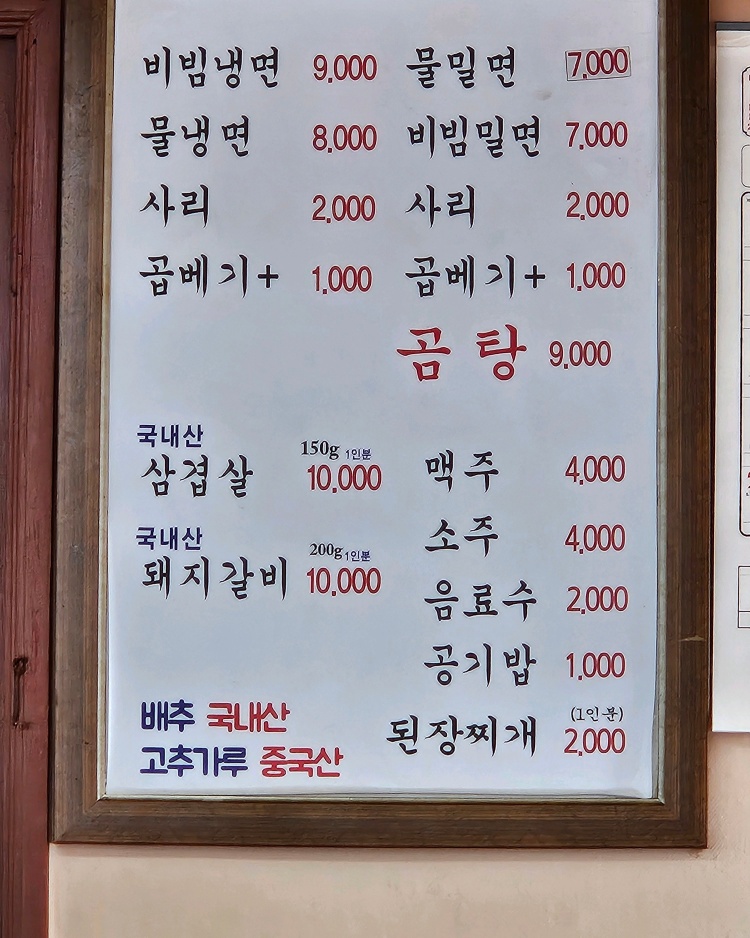 비빔냉면 9,000
물냉면 8,000
사리 2,000
곱베기+ 1,000
물밀면 7,000
비빔밀면 7,000
사리 2,000
곱베기+ 1,000
곰탕 9,000
국내산
삼겹살 150g 1인분 10,000
국내산
돼지갈비 200g 1인분 10,000
맥주 4,000
소주 4,000
음료수 2,000
공기밥 1,000
된장찌개 (1인분) 2,000
배추 국내산
고추가루 중국산